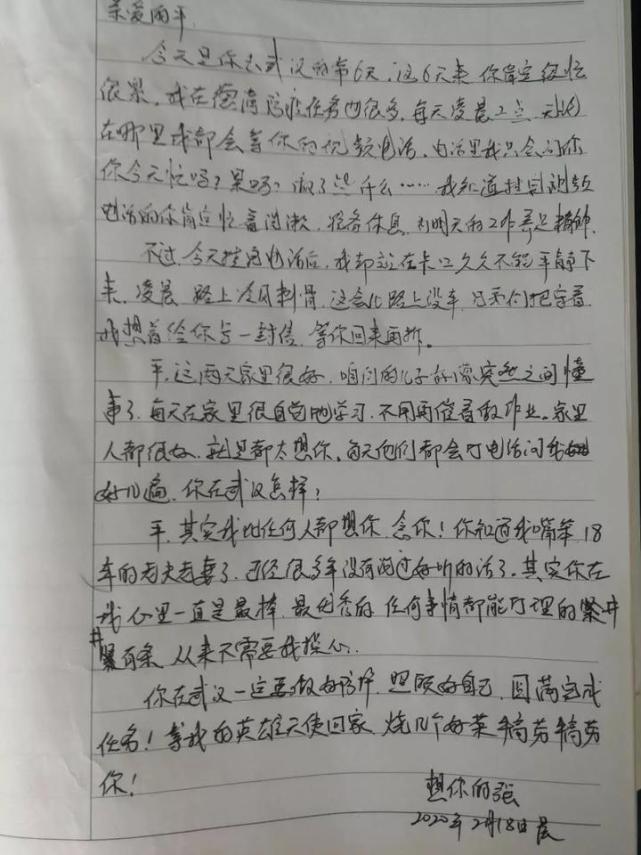 亲爱的平
今天是你去武汉的第6天,这6天来你肯定很忙
很累,我在德清防疫任务也很多,每天凌晨2点,无论
在哪里我都会等你的视频电话,电话里我只会问你
你今天忙吗?累吗?做了些什么……我知道挂完视频
电话的你肯定忙着洗漱,准备休息,为明天的工作养足精神.
不过,今天挂完电话后,我却站在卡口久久不能平静下
来,凌晨 路上冷风刺骨,这会儿路上没车,兄弟们把守着
我想着给你写一封信,等你回来再拆。
平,这两天家里很好,咱们的儿子好像突然之间懂
事了,每天在家里很自觉地学习,不用再催着做作业。家里
人都很好,就是都太想你,每天他们都会打电话问我
好几遍,你在武汉怎样?
平,其实我比任何人都想你,念你!你知道我嘴笨,18
年的老夫老妻了,已经很多年没有说过好听的话了。其实你在
我心里一直是最棒,最优秀的,任何事情都能打理的井
井有条,从来不需要我操心.
你在武汉一定要做好防护,照顾好自己,圆满完成
任务!等我的英雄天使回家,烧几个好菜犒劳犒劳
你!
想你的强
2020年2月18日晨